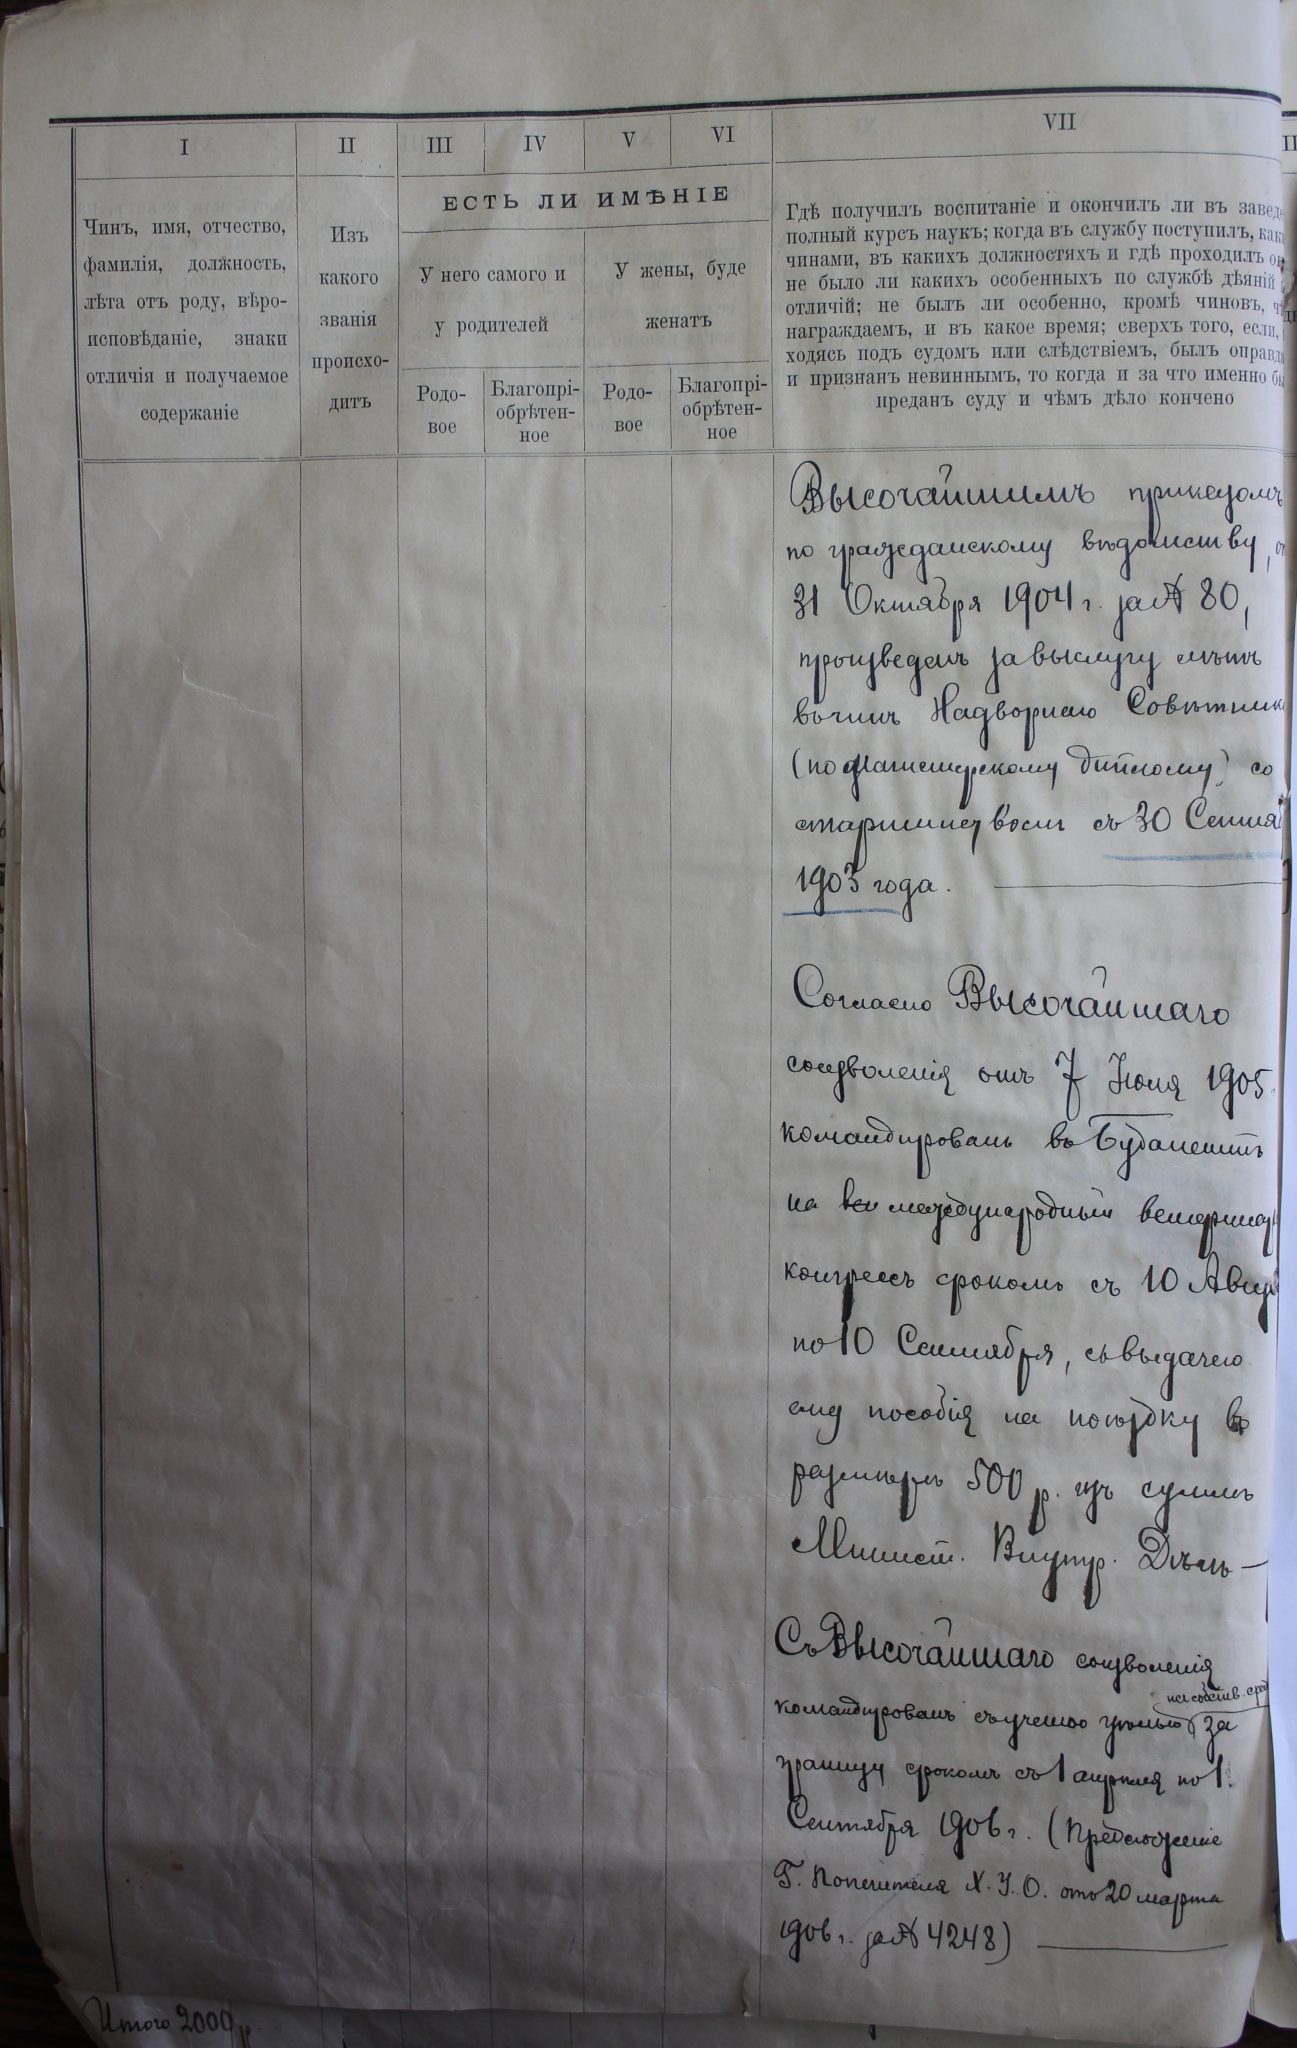 I II III IV V VI VII
ЕСТЬ ЛИ ИМѢНІЕ
Чинъ, имя, отчество,
фамилія, должность,
лѣта отъ роду, вѣро-
исповѣданіе, знаки
отличія и получаемое
содержаніе
Изъ
какого
званія
происхо-
дитъ
У него самого и
у родителей
У жены, буде
женатъ
Родо-
вое
Благопрі-
обрѣтен-
ное
Родо-
вое
Благопрі-
обрѣтен-
ное
Гдѣ получилъ воспитаніе и окончилъ ли въ заведе
полный курсъ наукъ; когда въ службу поступилъ, как
чинами, въ какихъ должностяхъ и гдѣ проходилъ он
не было ли какихъ особенныхъ по службѣ дѣяній
отличій; не былъ ли особенно, кромѣ чиновъ, чѣ
награждаемъ, и въ какое время; сверхъ того, если,
ходясь подъ судомъ или слѣдствіемъ, былъ оправда
и признанъ невиннымъ, то когда и за что именно бы
преданъ суду и чѣмъ дѣло кончено
Высочайшимъ приказомъ
по гражданскому вѣдомству, о
31 Октября 1904 г. за № 80,
произведенъ за выслугу лѣтъ
въ чинъ Надворнаго Совѣтника
(по магистерскому диплому) со
старшинствомъ съ 30 Сентяб
1903 года.
Согласно Высочайшаго
соизволенія отъ 7 Іюля 1905
командированъ въ Будапештъ
на международный ветеринар
конгрессъ срокомъ съ 10 Авгус
по 10 Сентября, съ выдачею
ему пособія на поѣздку въ
размѣрѣ 500 р. изъ суммъ
Минист. Внутр. Дѣлъ —
Съ Высочайшаго соизволенія
на собств. сред
командированъ съ ученою цѣлью за
границу срокомъ съ 1 апрѣля по 1
Сентября 1906 г. (Предложеніе
Г. Попечителя Х. У. О. отъ 20 марта
1906 г. за № 4248)
Итого 2000 р.